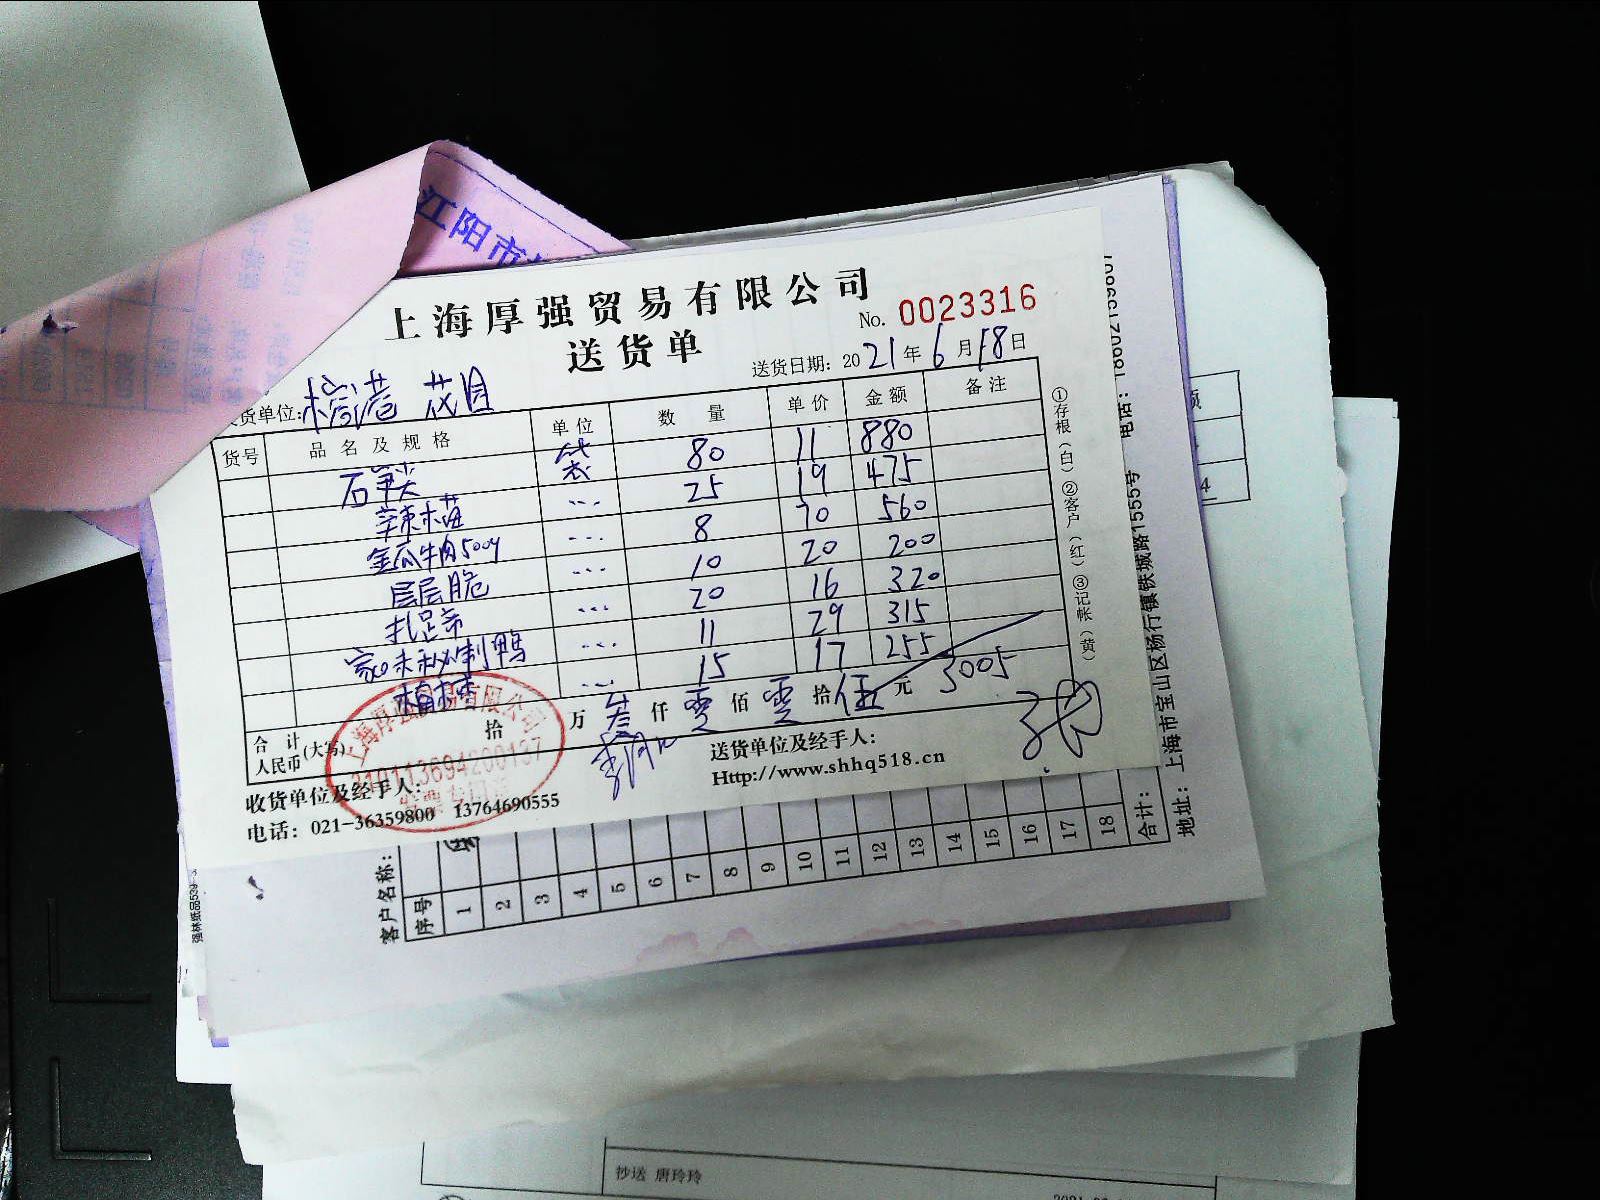 江阳市
上海厚强贸易有限公司
送货单
No. 0023316
送货日期: 2021年6月18日
货单位: 花园
货号 品名及规格 单位 数量 单价 金额 备注
石笋尖 袋 80 11 880
辣木菇 ... 25 19 475
金瓜牛肉500g ... 8 70 560
层层脆 ... 10 20 200
扎足帝 ... 20 16 320
家味秘制鸭 ... 11 29 315
... 15 17 255
合计
人民币(大写) 拾 万 叁 仟 零 佰 零 拾 伍 元 3005
收货单位及经手人:
送货单位及经手人:
电话: 021-36359800 13764690555
Http://www.shhq518.cn
上海厚强贸易有限公司
310113694200137
发票专用章
①存根(白)②客户(红)③记帐(黄)
客户名称:
序号 1 2 3 4 5 6 7 8 9 10 11 12 13 14 15 16 17 18 合计:
地址: 上海市宝山区杨行镇铁城路1555号 电话:
抄送 唐玲玲